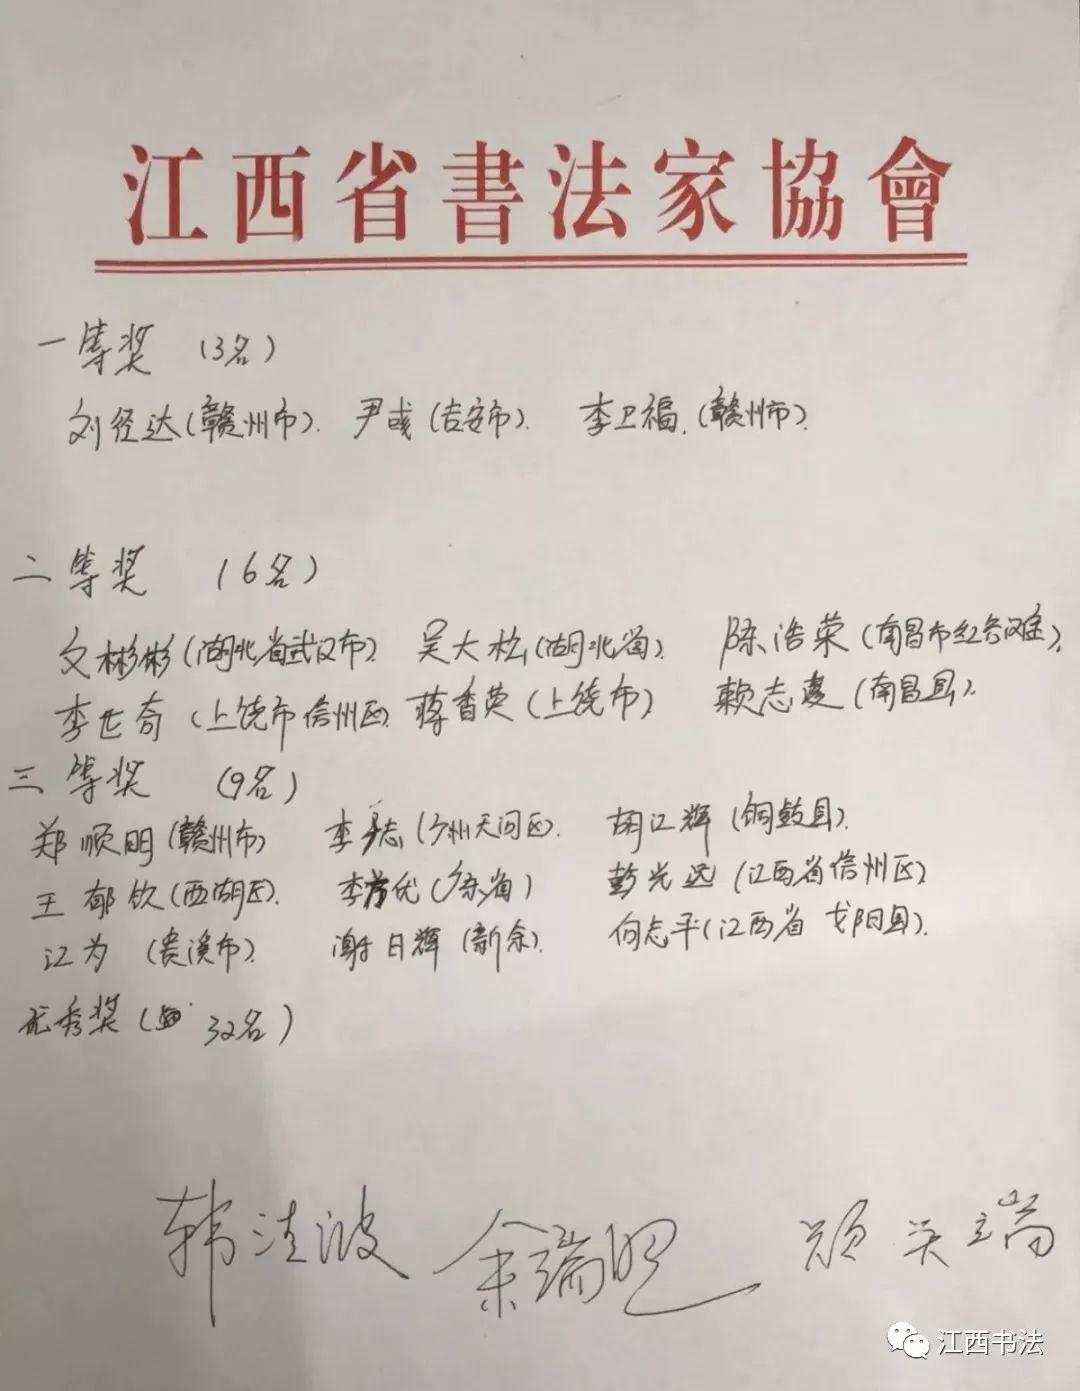 江西省書法家協會
一等奖 (3名)
刘径达(赣州市). 尹彧(吉安市). 李卫福.(赣州市).
二等奖 (6名)
文彬彬(湖北省武汉市). 吴大松(湖北省). 陈浩荣(南昌市红谷滩).
李世奇(上饶市信州区). 蒋香英(上饶市) 赖志(南昌县).
三等奖 (9名)
郑顺明(赣州市) 李志(广州天河区). 胡江辉(铜鼓县).
王郁钦(西湖区). 李优(东省) 彭光远(江西省信州区)
江为 (贵溪市). 谢日辉(新余). 何志平(江西省 弋阳县).
优秀奖( 32名)
韩清波 余瑞明 端
江西书法